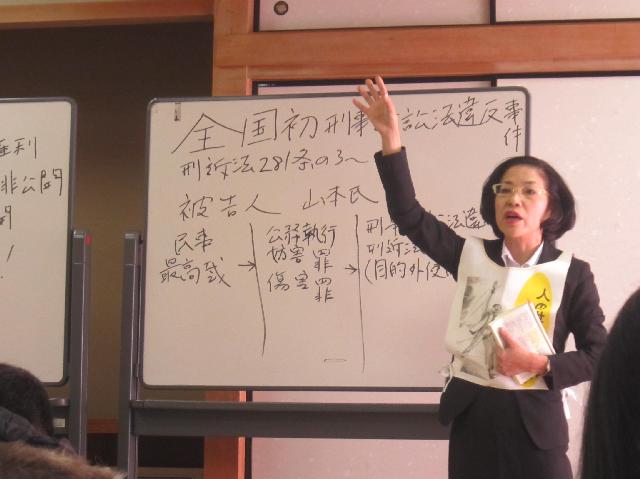 利
非公開
!
全国初刑事訟法違反事件
刑訴法281条の3〜
被告人 山本氏
民事
最高裁
→
公務執行
妨害罪
傷害罪
→
刑事訟法違
刑訴法
(目的外使
人の